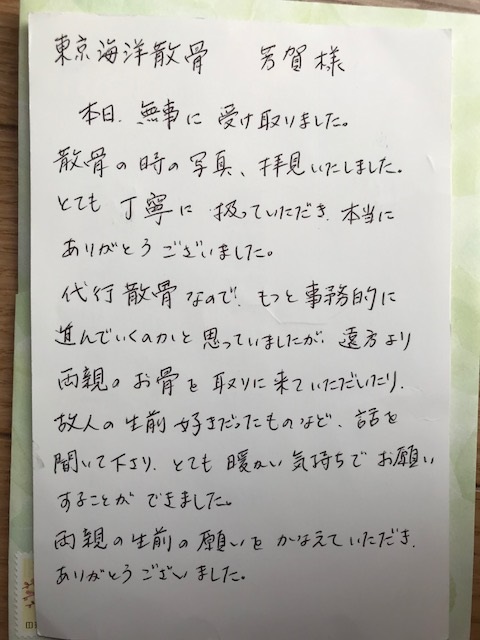 東京海洋散骨　芳賀様
本日、無事に受け取りました。
散骨の時の写真、拝見いたしました。
とても丁寧に扱っていただき、本当に
ありがとうございました。
代行散骨なので、もっと事務的に
進んでいくのかと思っていましたが、遠方より
両親のお骨を取りに来ていただいたり、
故人の生前好きだったものなど、話を
聞いて下さり、とても暖かい気持ちでお願い
することができました。
両親の生前の願いをかなえていただき、
ありがとうございました。